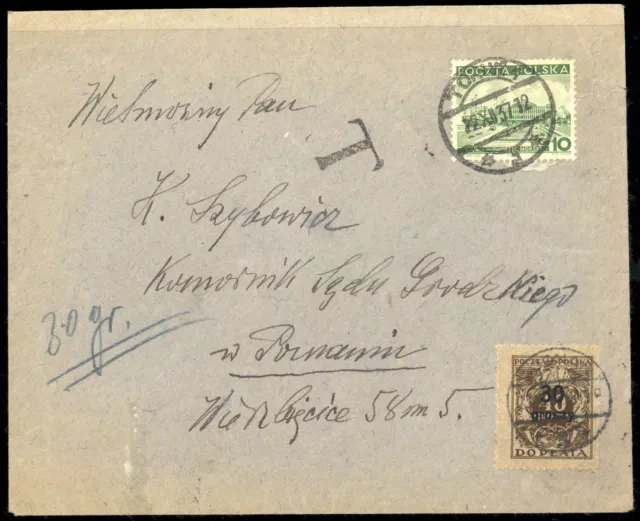 POCZTA POLSKA
10
22 XII 37-12
Wielmożny Pan
T
K. Szybowicz
Komornik Sądu Grodzkiego
30 gr.
w Poznaniu
58 m 5.
POCZTA POLSKA
30
GROSZY
DOPŁATA